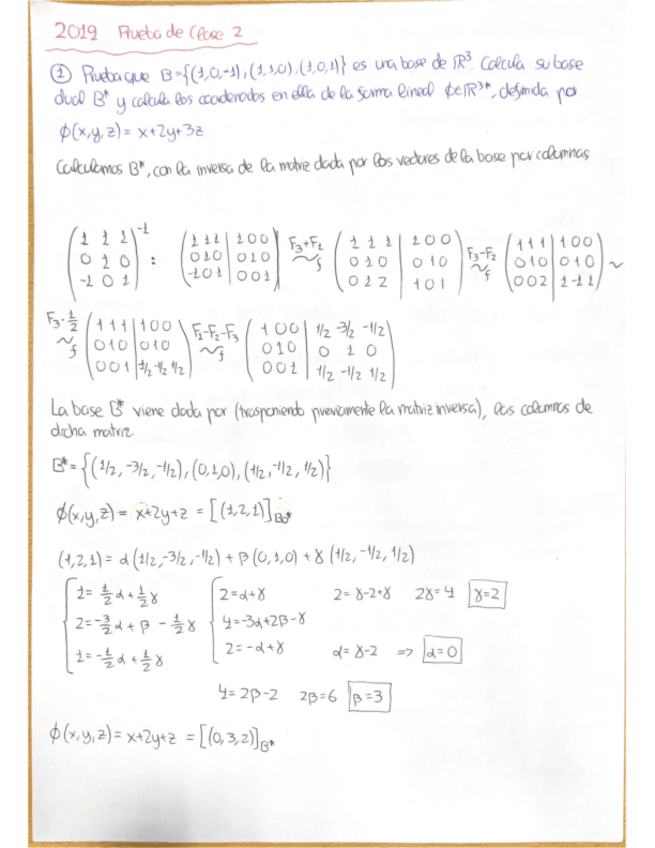 2019 Prueba de Clase 2
① Prueba que B={(1,0,-1),(1,1,0),(1,0,1)} es una base de ℝ³. Calcula su base
dual B* y calcula las coordenadas en ella de la forma lineal ϕ∈ℝ³*, definida por
ϕ(x,y,z)= x+2y+3z
Calculamos B*, con la inversa de la matriz dada por los vectores de la base por columnas
(1 1 1 / 0 1 0 / -1 0 1)⁻¹ : (1 1 1 | 1 0 0 / 0 1 0 | 0 1 0 / -1 0 1 | 0 0 1) F₃+F₁ ~f (1 1 1 | 1 0 0 / 0 1 0 | 0 1 0 / 0 1 2 | 1 0 1) F₃-F₂ ~f (1 1 1 | 1 0 0 / 0 1 0 | 0 1 0 / 0 0 2 | 1 -1 1) ~
F₃·1/2 ~f (1 1 1 | 1 0 0 / 0 1 0 | 0 1 0 / 0 0 1 | 1/2 -1/2 1/2) F₁-F₂-F₃ ~f (1 0 0 1/2 -3/2 -1/2 / 0 1 0 0 1 0 / 0 0 1 1/2 -1/2 1/2)
La base B* viene dada por (trasponiendo previamente la matriz inversa), las columnas de
dicha matriz.
B*={(1/2,-3/2,-1/2),(0,1,0),(1/2,-1/2,1/2)}
ϕ(x,y,z)= x+2y+z = [(1,2,1)]B₀*
(1,2,1)= α(1/2,-3/2,-1/2)+β(0,1,0)+γ(1/2,-1/2,1/2)
1= 1/2 α + 1/2 γ 2=α+γ 2=γ-2+γ 2γ=4 γ=2
2=-3/2 α + β - 1/2 γ 4=-3α+2β-γ
1=-1/2 α + 1/2 γ 2=-α+γ α=γ-2 => α=0
4=2β-2 2β=6 β=3
ϕ(x,y,z)= x+2y+z = [(0,3,2)]B*